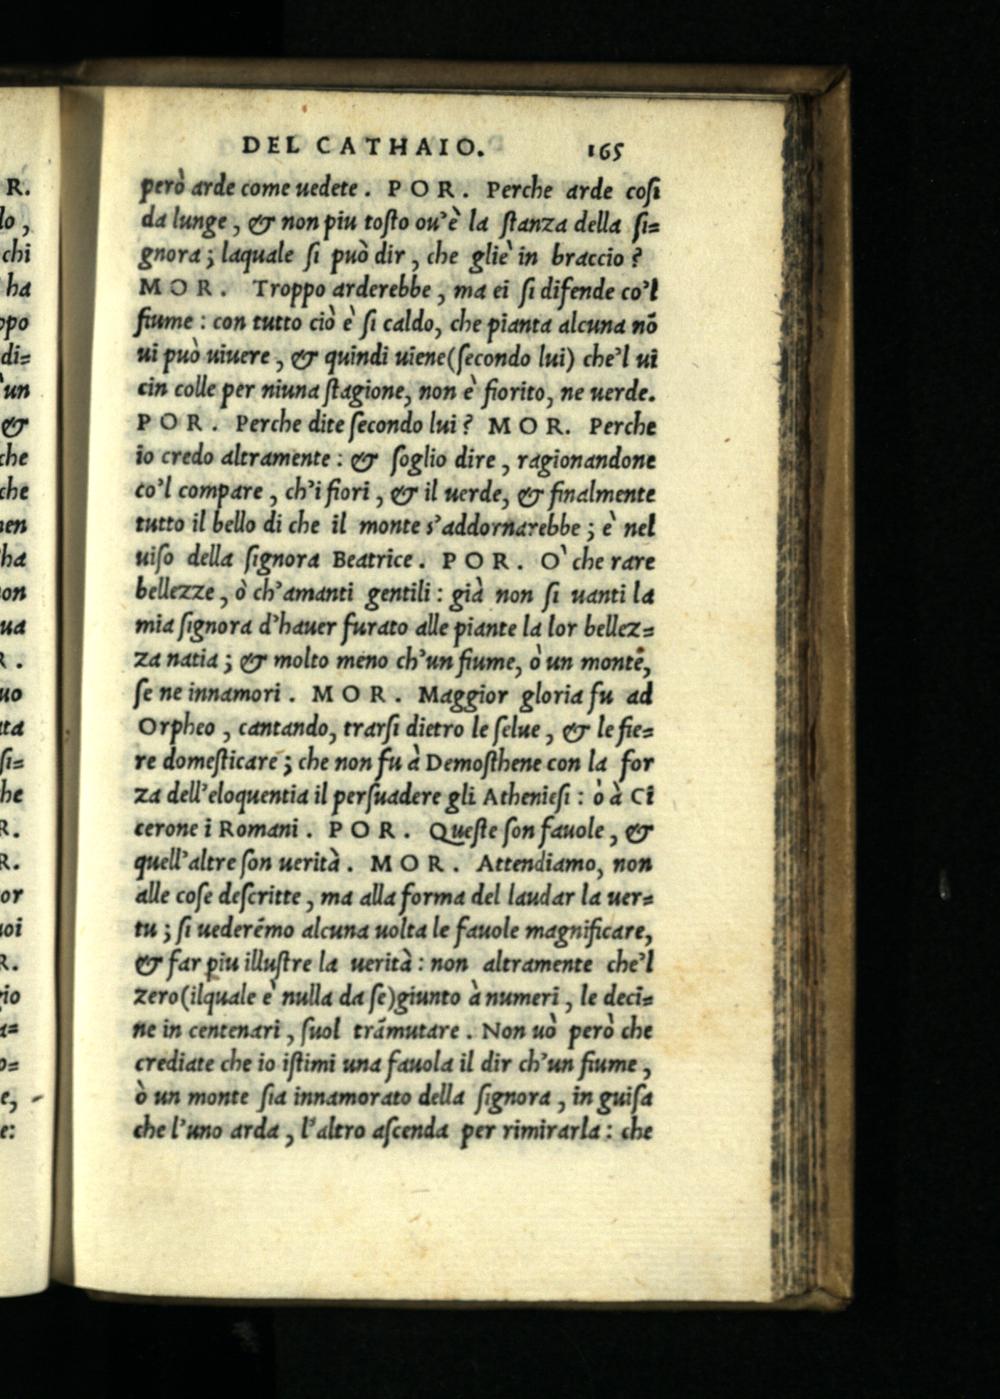 DEL CATHAIO. 165
però arde come uedete. POR. Perche arde coſi
da lunge, & non piu toſto ou'è la ſtanza della ſi=
gnora; laquale ſi può dir, che gliè in braccio?
MOR. Troppo arderebbe, ma ei ſi difende co'l
fiume: con tutto ciò è ſi caldo, che pianta alcuna nõ
ui può uiuere, & quindi uiene(ſecondo lui) che'l ui
cin colle per niuna ſtagione, non è fiorito, ne uerde.
POR. Perche dite ſecondo lui? MOR. Perche
io credo altramente: & ſoglio dire, ragionandone
co'l compare, ch'i fiori, & il uerde, & finalmente
tutto il bello di che il monte s'addornarebbe; è nel
uiſo della ſignora Beatrice. POR. O` che rare
bellezze, ò ch'amanti gentili: già non ſi uanti la
mia ſignora d'hauer furato alle piante la lor bellez=
za natia; & molto meno ch'un fiume, ò un monte,
ſe ne innamori. MOR. Maggior gloria fu ad
Orpheo, cantando, trarſi dietro le ſelue, & le fie=
re domeſticare; che non fu à Demoſthene con la for
za dell'eloquentia il perſuadere gli Athenieſi: ò à Ci
cerone i Romani. POR. Queſte ſon fauole, &
quell'altre ſon uerità. MOR. Attendiamo, non
alle coſe deſcritte, ma alla forma del laudar la uer=
tu; ſi uederẽmo alcuna uolta le fauole magnificare,
& far piu illuſtre la uerità: non altramente che'l
zero(ilquale è nulla da ſe)giunto à numeri, le deci=
ne in centenari, ſuol trãmutare. Non uò però che
crediate che io iſtimi una fauola il dir ch'un fiume,
ò un monte ſia innamorato della ſignora, in guiſa
che l'uno arda, l'altro aſcenda per rimirarla: che